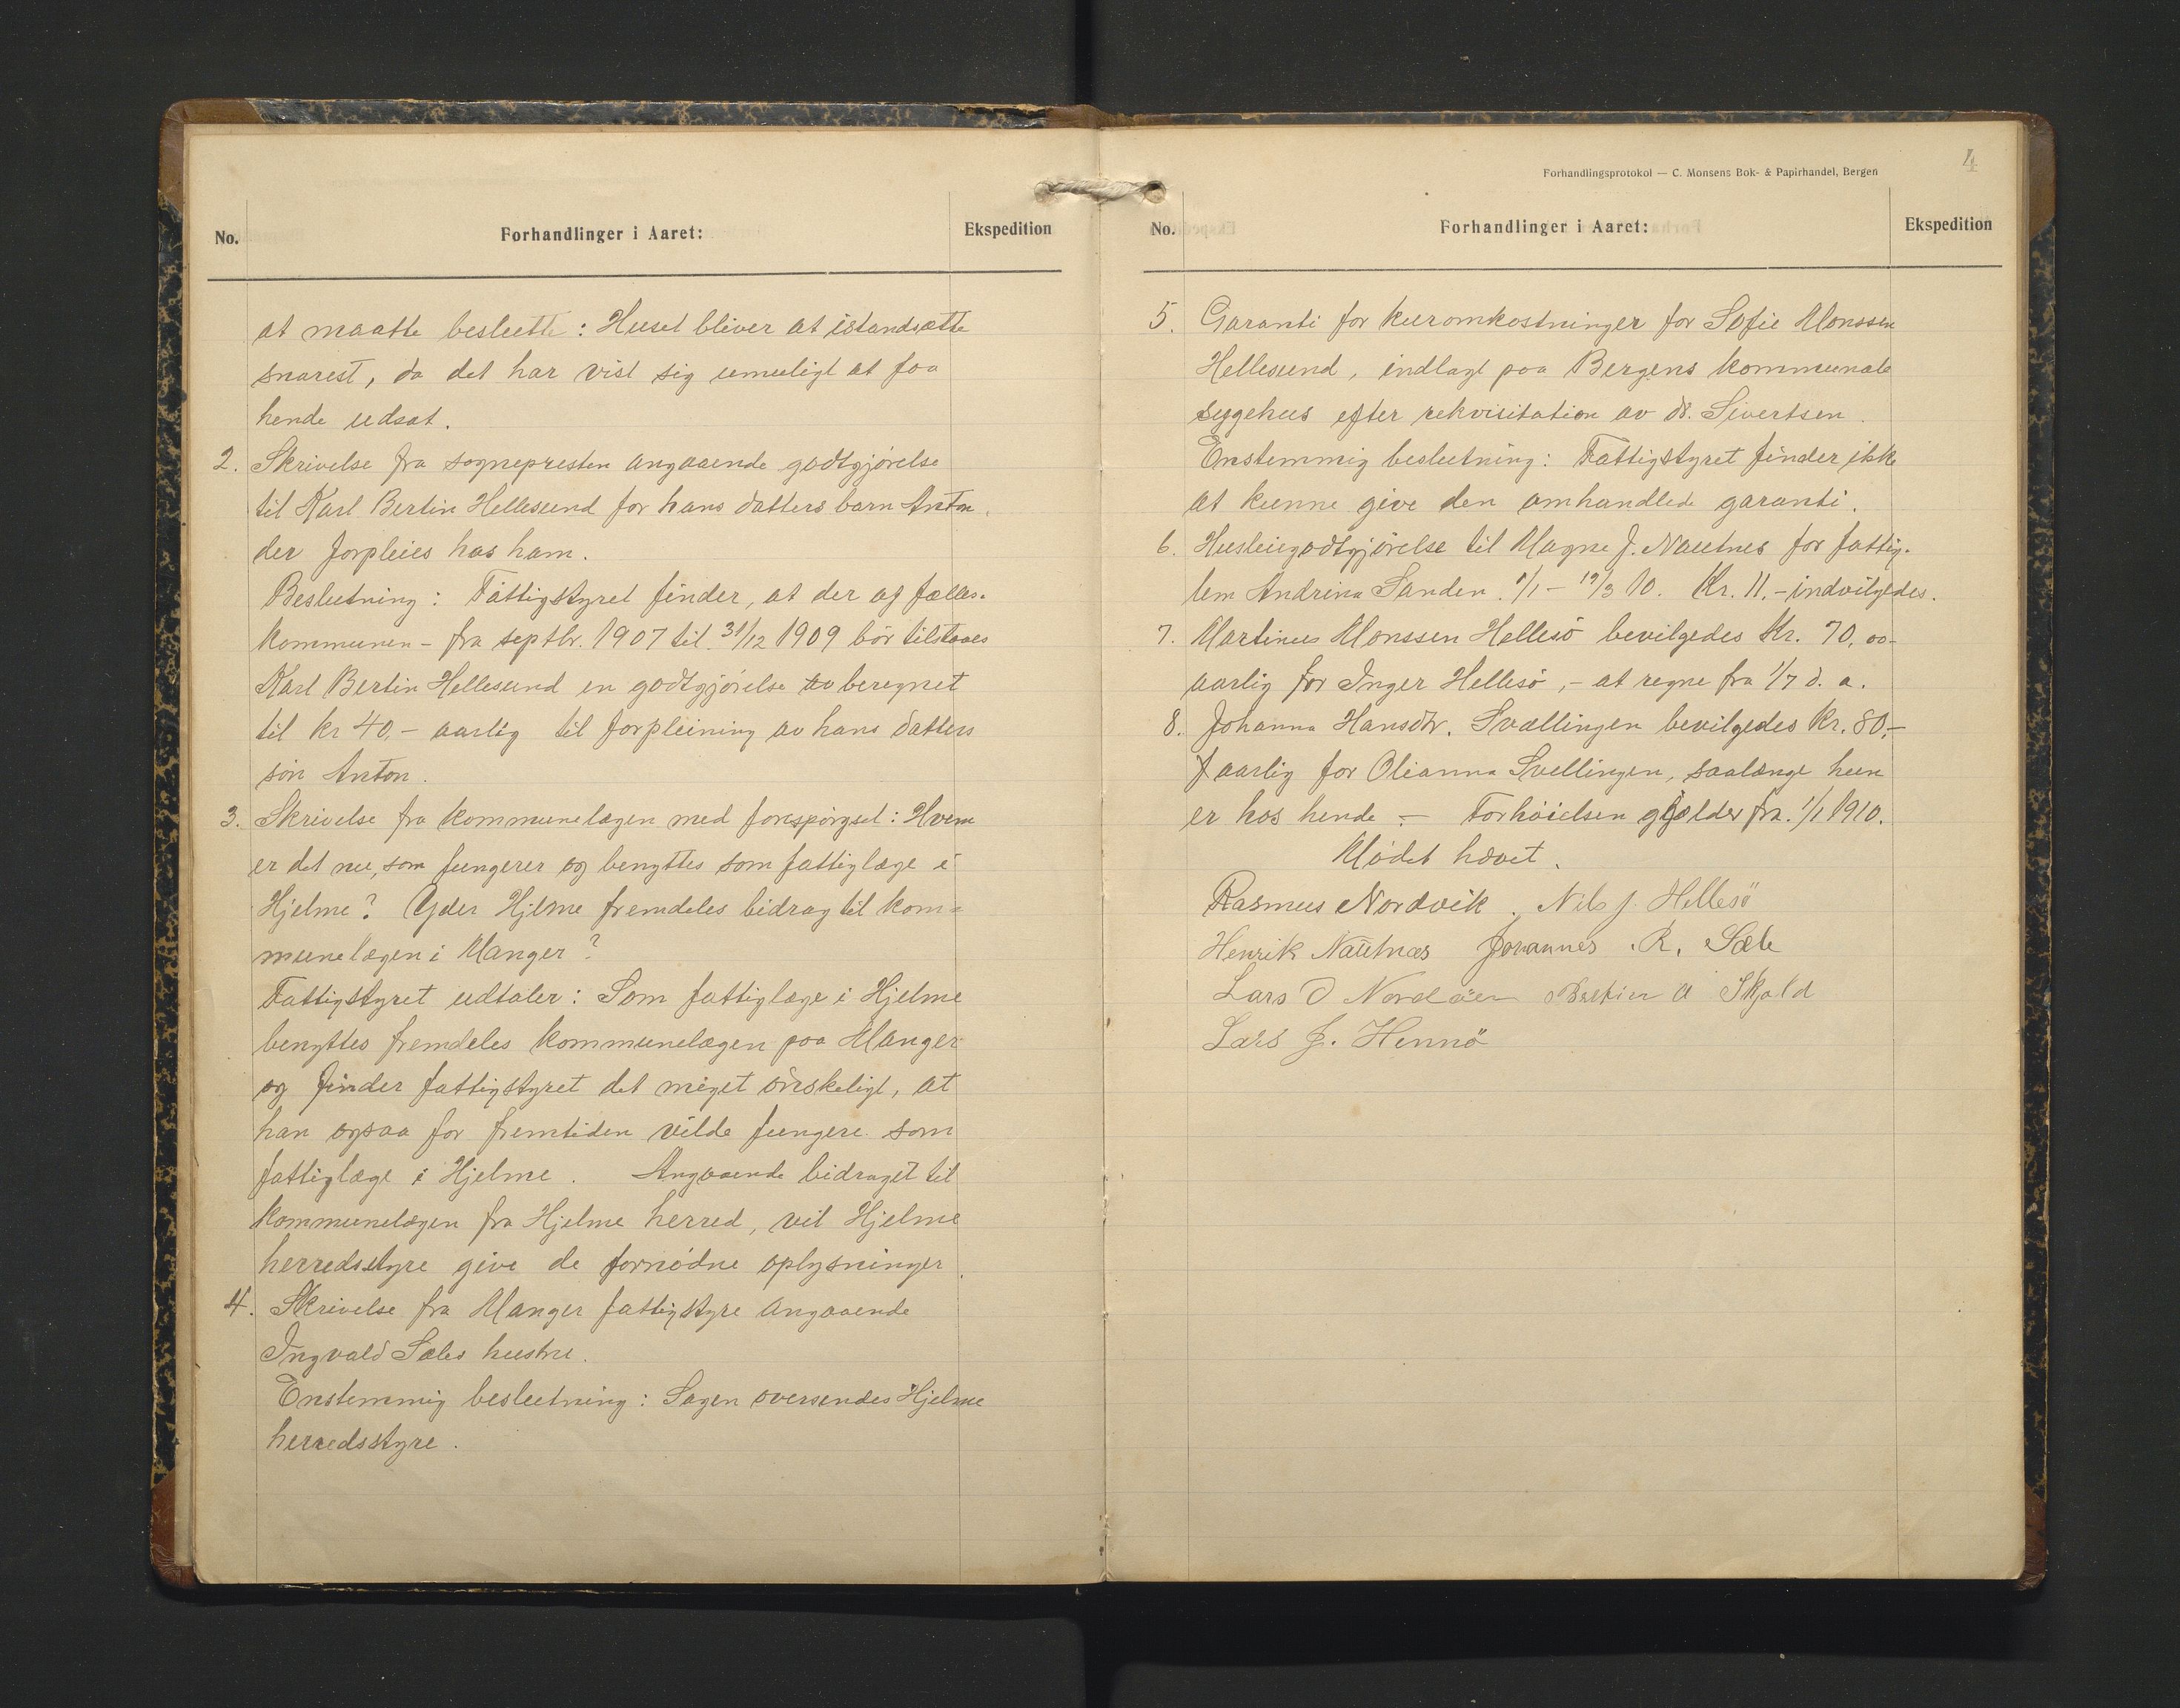 No.
Forhandlinger i Aaret:
Ekspedition
at maatte beslutte: Huset bliver at istandsætte
snarest, da det har vist sig umuligt at faa
hende udsat.
2. Skrivelse fra sognepresten angaaende godtgjørelse
til Karl Bertin Hellesund for hans datters barn Anton,
der forpleies hos ham.
Beslutning: Fattigstyret finder, at der af fælles-
kommunen - fra septbr. 1907 til 31/12 1909 bør tilstaaes
Karl Bertin Hellesund en godtgjørelse av beregnet
til kr 40,- aarlig til forpleining av hans datters
søn Anton.
3. Skrivelse fra kommunelægen med forespørgsel: Hvem
er det nu, som fungerer og benyttes som fattiglæge i
Hjelme? Yder Hjelme fremdeles bidrag til kom-
munelægen i Manger?
Fattigstyret udtaler: Som fattiglæge i Hjelme
benyttes fremdeles kommunelægen paa Manger
og finder fattigstyret det meget ønskeligt, at
han ogsaa for fremtiden vilde fungere som
fattiglæge i Hjelme. Angaaende bidraget til
kommunelægen fra Hjelme herred, vil Hjelme
herredsstyre give de fornødne oplysninger.
4. Skrivelse fra Manger fattigstyre angaaende
Ingvald Sæles hustru.
Enstemmig beslutning: Sagen oversendes Hjelme
herredsstyre.
Forhandlingsprotokol — C. Monsens Bok- & Papirhandel, Bergen
4
No.
Forhandlinger i Aaret:
Ekspedition
5. Garanti for kuromkostninger for Sofie Monssen
Hellesund, indlagt paa Bergens kommunale
sygehus efter rekvisitation av dr. Sivertsen.
Enstemmig beslutning: Fattigstyret finder ikke
at kunne give den omhandlede garanti.
6. Husleiegodtgjørelse til Magne J. Nautnes for fattig-
lem Andrina Sanden. 1/1 - 19/3 10. Kr. 11,- indvilgedes.
7. Martinus Monssen Hellesø bevilgedes kr. 70,00-
aarlig for Inger Hellesø, - at regne fra 1/7 d. a.
8. Johanna Hansdtr. Svællingen bevilgedes kr. 80,-
aarlig for Olianna Svellingen, saalænge hun
er hos hende. - Forhøielsen gjælder fra 1/1 1910.
Mødet hævet.
Rasmus Nordvik. Nils J. Hellesö
Henrik Nautnæs Johannes . R. Sæle
Lars O Nordöen Bertin A Skjold
Lars J. Hennö